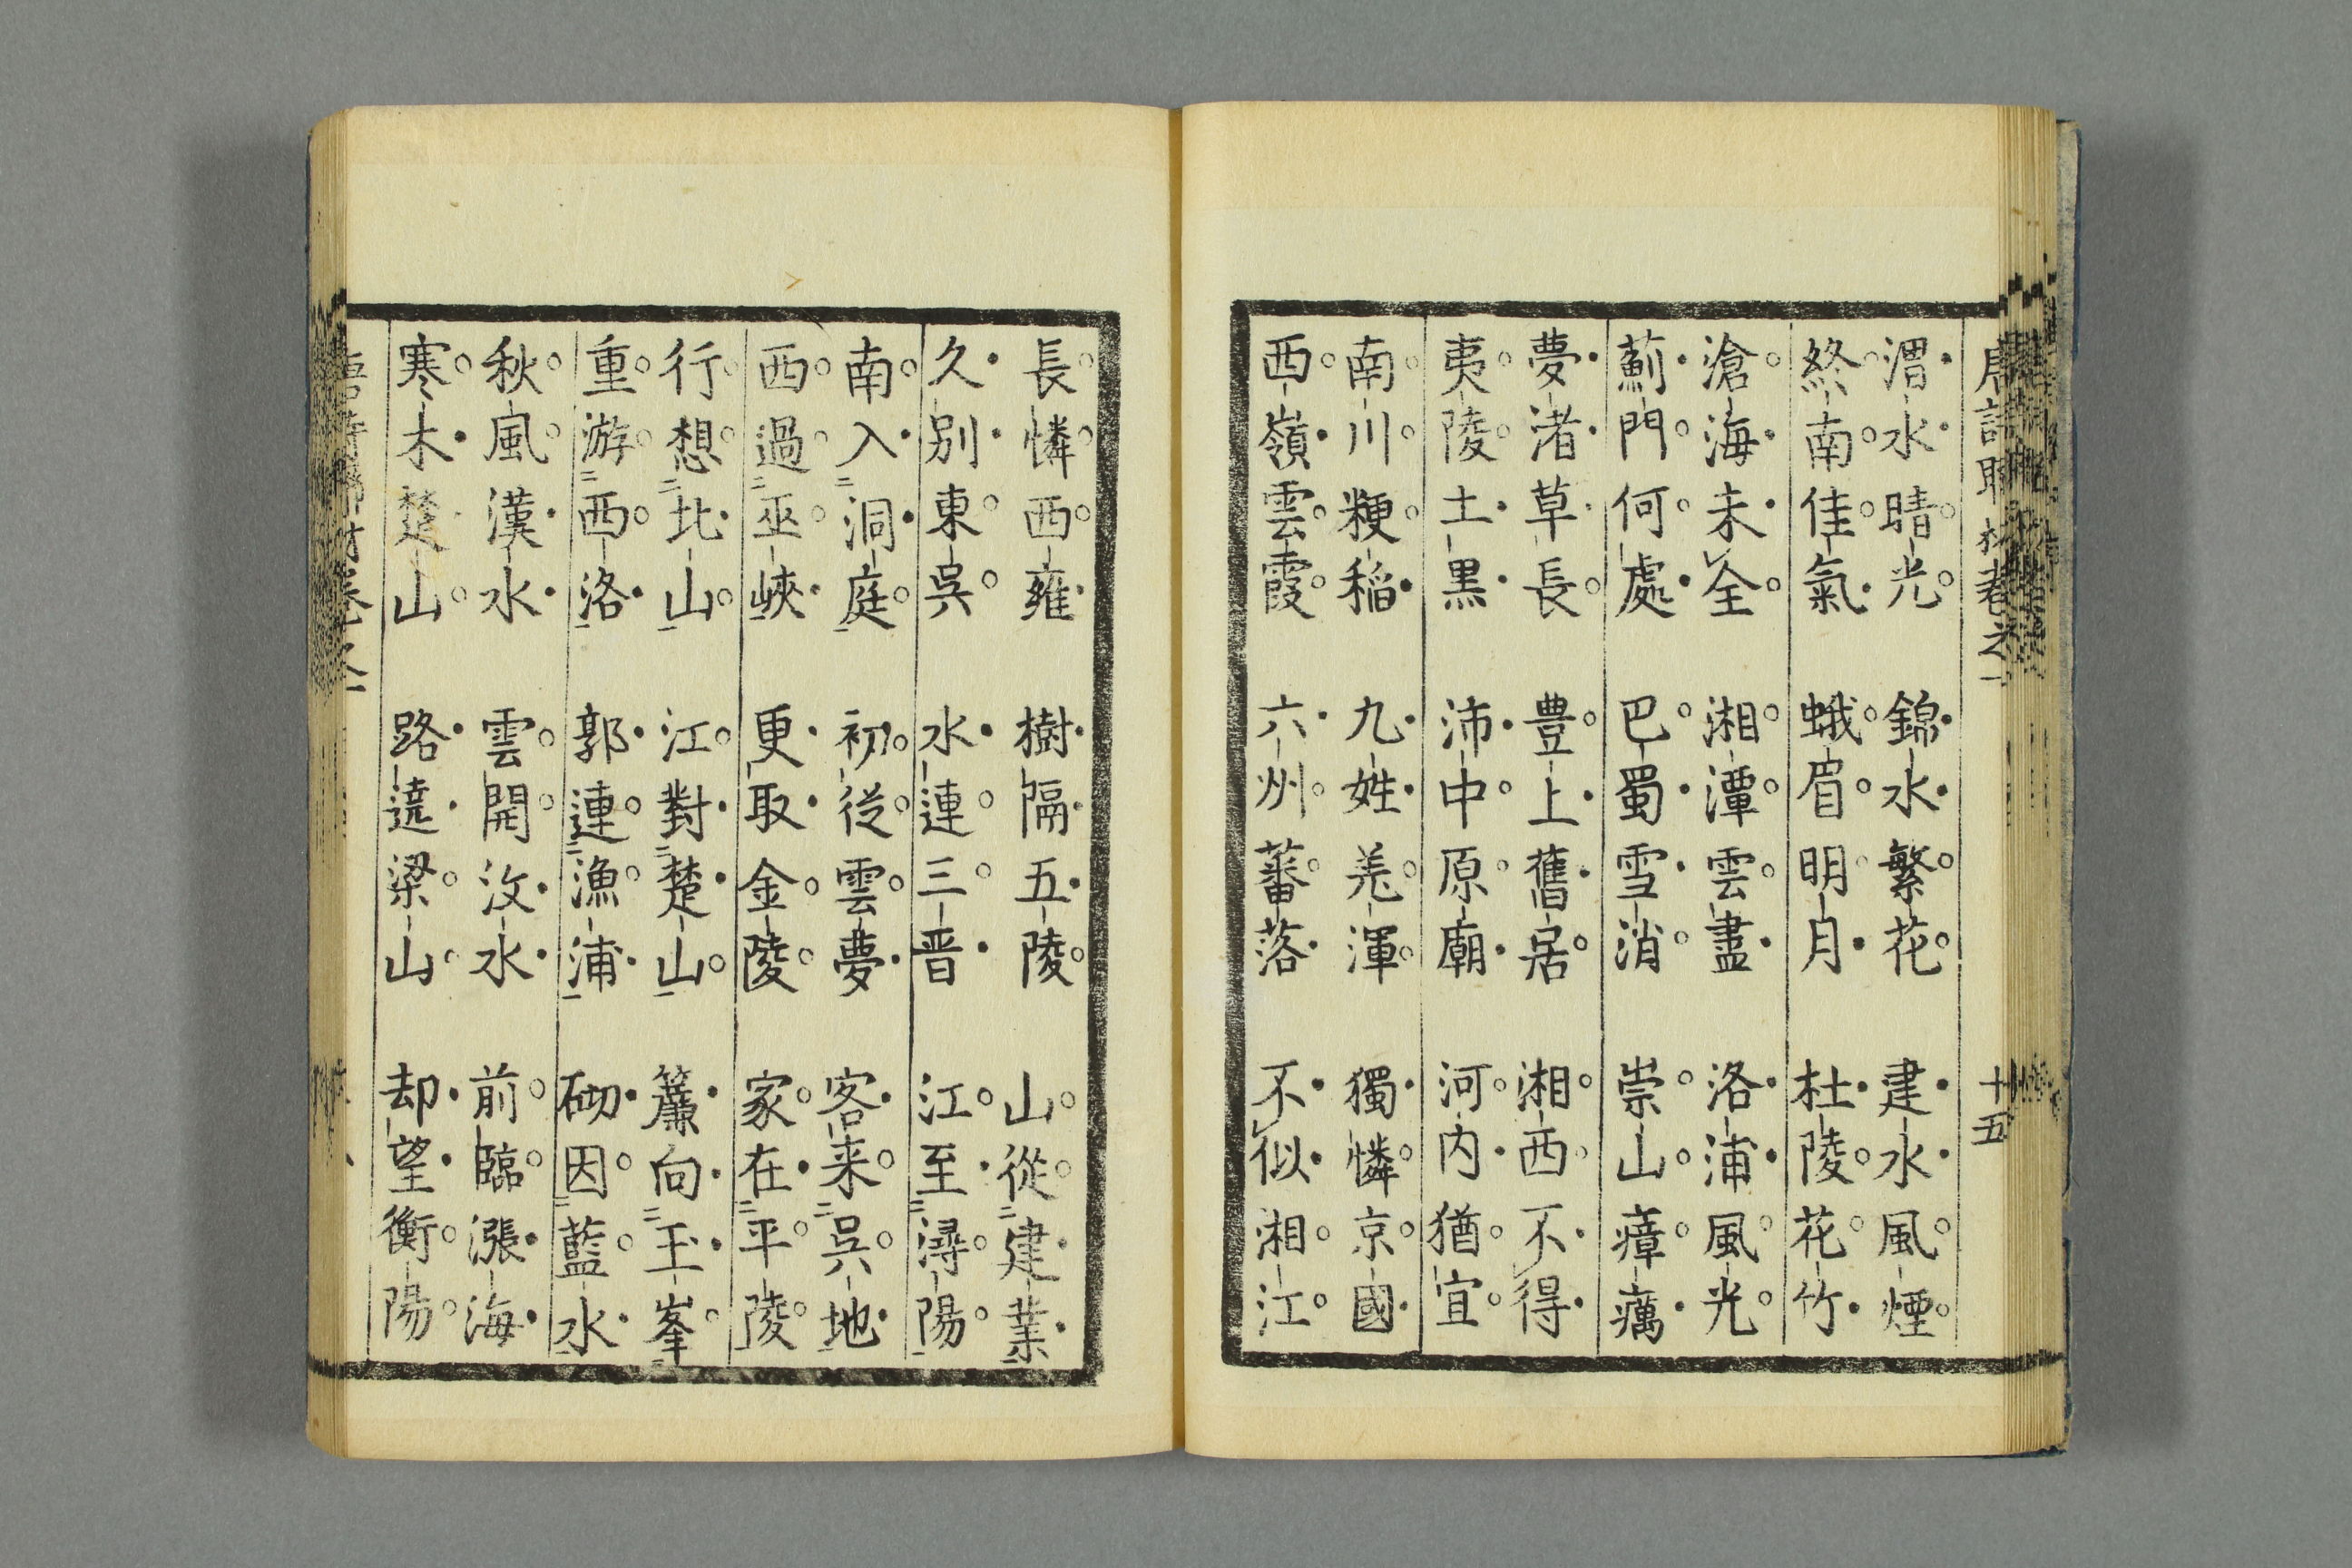 唐詩聯材卷之一 十五
渭水晴光 錦水繁花 建水風煙
終南佳氣 蛾眉明月 杜陵花竹
滄海未全 湘潭雲盡 洛浦風光
薊門何處 巴蜀雪消 崇山瘴癘
夢渚草長 豊上舊居 湘西不得
夷陵土黒 沛中原廟 河内猶宜
南川粳稲 九姓羌渾 獨憐京國
西嶺雲霞 六州蕃落 不似湘江
長憐西雍 樹隔五陵 山從二建業一
久別東呉 水連三晋 江至二潯陽一
南入二洞庭一 初從雲夢 客来二呉地一
西過二巫峽一 更取金陵 家在二平陵一
行想二北山一 江對二楚山一 簾向二玉峯一
重游二西洛一 郭連二漁浦一 砌因二藍水一
秋風漢水 雲開汶水 前臨漲海
寒木楚山 路遠梁山 却望衡陽